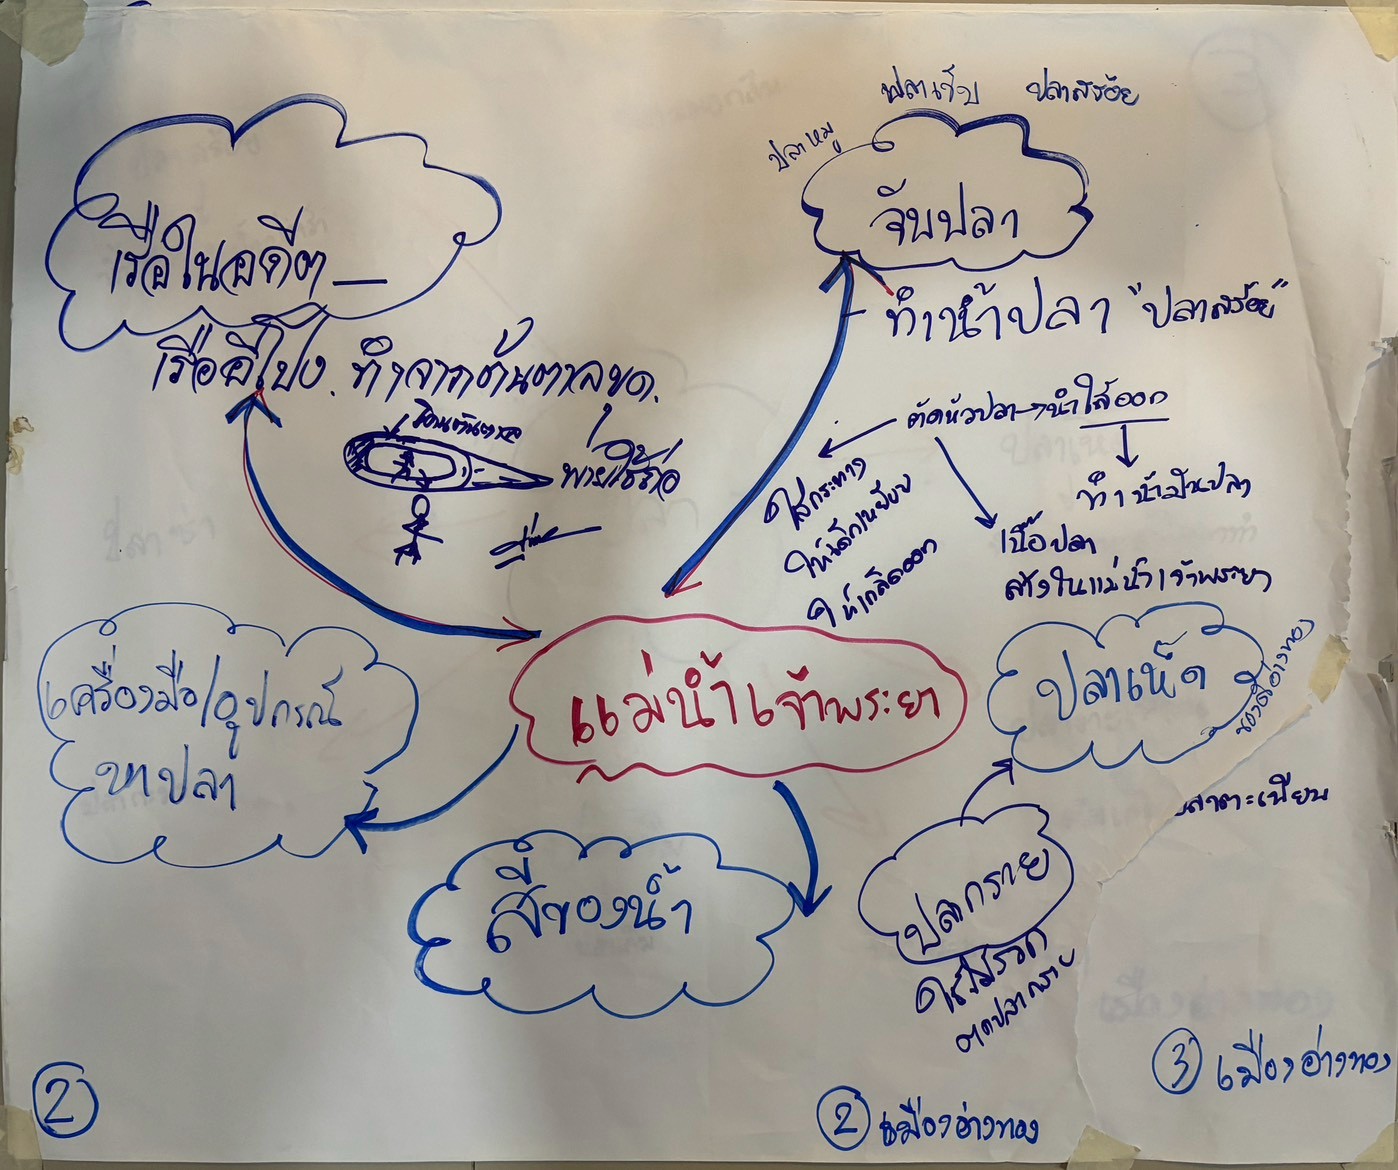 ปลาสร้อย
ปลาหมู
จับปลา
เรือในอดีต
ทำน้ำปลา "ปลาสร้อย"
เรืออีโปง. ทำจากต้นตาลขุด.
ตัดหัวปลา → นำไส้ออก
พายใช้ถ่อ
ใส่กระทาง
ให้เด็กเหยียบ
ให้เกล็ดออก
ทำน้ำมันปลา
เนื้อปลา
ล้างในแม่น้ำเจ้าพระยา
แม่น้ำเจ้าพระยา
ปลาเห็ด
ของดีอ่างทอง
เครื่องมือ/อุปกรณ์
หาปลา
ปลาตะเพียน
สีของน้ำ
ปลากราย
ใช้ไม้รวก
ตกปลากราย
2
2 เมืองอ่างทอง
3 เมืองอ่างทอง